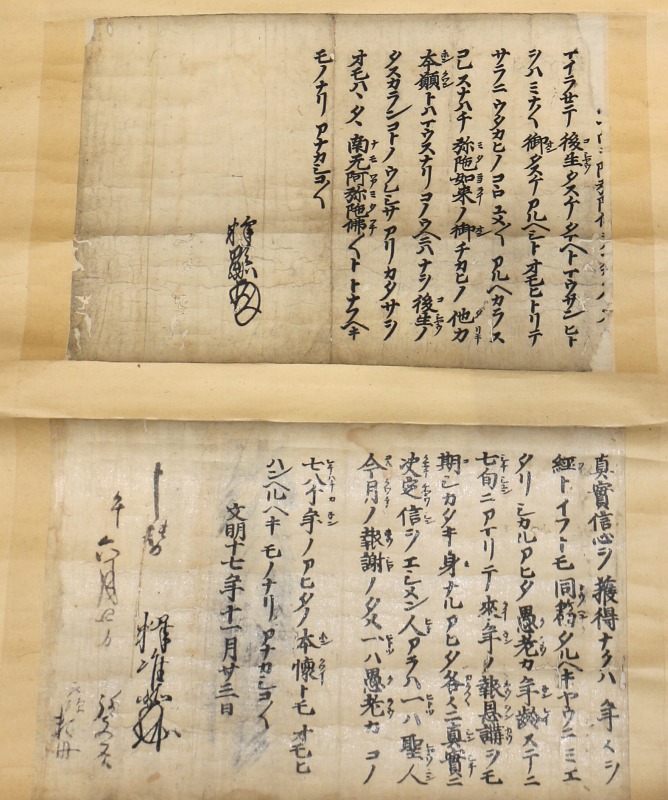 イイラセテ後生タスケタマヘトマウサンヒト
シハミナ〱御タスケアルヘシトオモヒトリテ
サラニウタカヒノコロユメ〱アルヘカラス
已スナハチ弥陀如来ノ御チカヒノ他力
本願トハマウスナリコノウヘニハナヲ後生ノ
タスカランコトノウレシサアリカタサヲ
オモハヽタヽ南无阿弥陀佛〱トトナフヘキ
モノナリアナカシコ〱
釋
真實信心ヲ獲得ナクハ年〱ヲ
經トイフトモ同篇タルヘキヤウニミエ
タリシカルアヒタ愚老カ年齢ステニ
七旬ニアマリテ來年ノ報恩講ヲモ
期シカタキ身ナルアヒタ各〱ニ真實ニ
决定信ヲエシメン人アラハ一ハ聖人
今月ノ報謝ノタメ一ハ愚老カコノ
七八ケ年ノアヒタノ本懷トモオモヒ
ハンヘルヘキモノナリアナカシコ〱
文明十七年十一月廿三日
釋准
六月